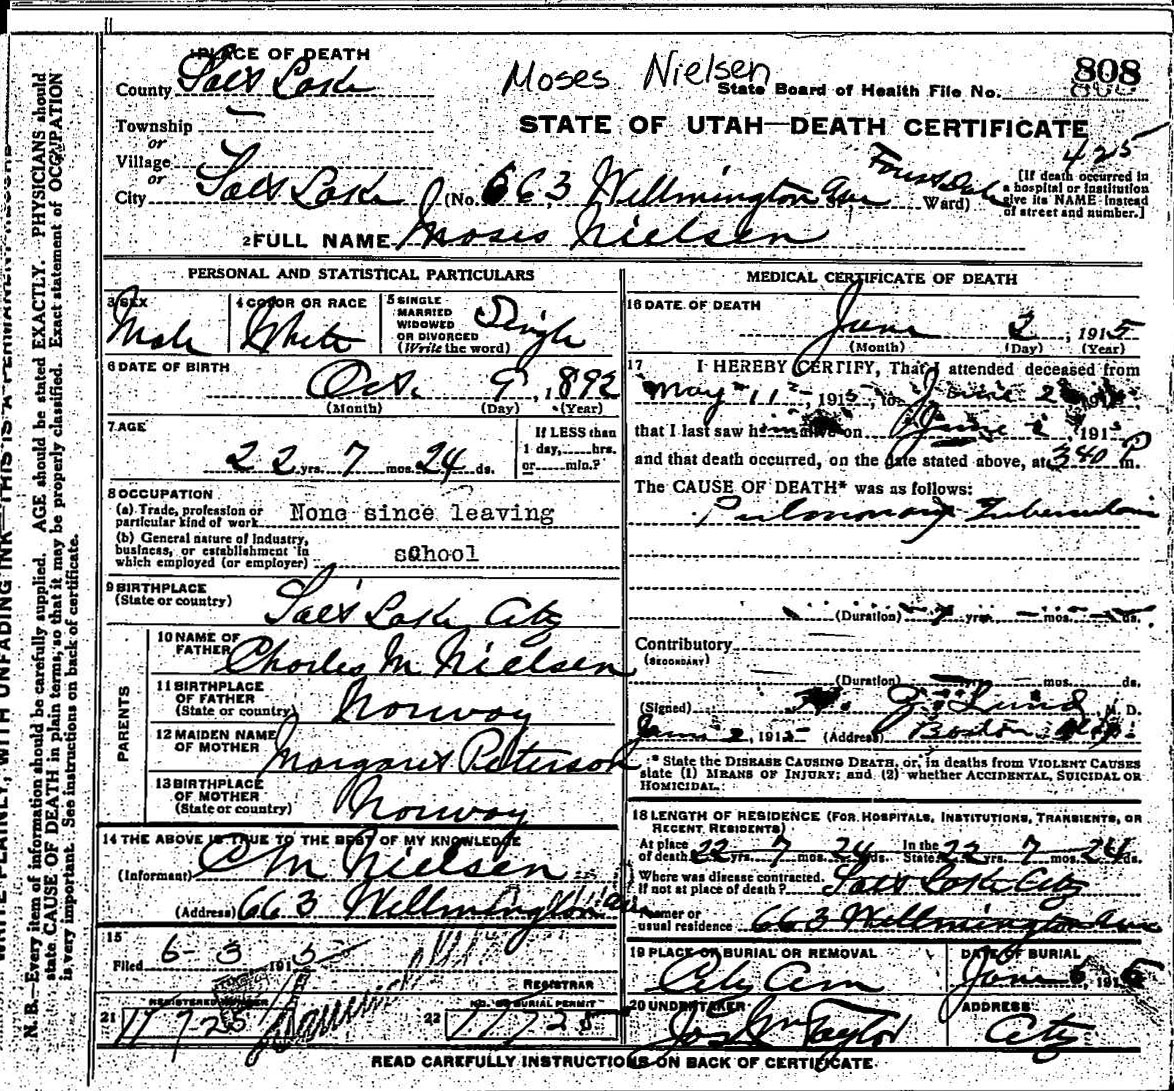 PLACE OF DEATH
County Salt Lake
Moses Nielsen
808
State Board of Health File No.
Township
or
STATE OF UTAH—DEATH CERTIFICATE
Village
or
425
City Salt Lake (No. 663 Wellmington Ave St. Ward)
[If death occurred in
a hospital or institution
give its NAME instead
of street and number.]
2 FULL NAME Moses Nielsen
PERSONAL AND STATISTICAL PARTICULARS
3 SEX
Male
4 COLOR OR RACE
White
5 SINGLE
MARRIED
WIDOWED
OR DIVORCED
(Write the word)
Single
6 DATE OF BIRTH
Oct. 9, 1892
(Month) (Day) (Year)
7 AGE
22 yrs. 7 mos. 24 ds.
If LESS than
1 day, hrs.
or min.?
8 OCCUPATION
(a) Trade, profession or
particular kind of work None since leaving
(b) General nature of Industry,
business, or establishment in
which employed (or employer) school
9 BIRTHPLACE
(State or country) Salt Lake City
PARENTS
10 NAME OF
FATHER Charles M Nielsen
11 BIRTHPLACE
OF FATHER
(State or country) Norway
12 MAIDEN NAME
OF MOTHER Margaret Peterson
13 BIRTHPLACE
OF MOTHER
(State or country) Norway
14 THE ABOVE IS TRUE TO THE BEST OF MY KNOWLEDGE
(Informant) C M Nielsen
(Address) 663 Wellmington Ave
15
Filed 6-3 1915
REGISTRAR
REGISTERED NUMBER
21
NO. OF BURIAL PERMIT
22
MEDICAL CERTIFICATE OF DEATH
16 DATE OF DEATH
June 2, 1915
(Month) (Day) (Year)
17 I HEREBY CERTIFY, That I attended deceased from
May 11, 1915, to June 2 191
that I last saw him alive on June 2, 1915
and that death occurred, on the date stated above, at 340 P m.
The CAUSE OF DEATH* was as follows:
Pulmonary Tuberculosis
(Duration) yrs. mos. ds.
Contributory
(SECONDARY)
(Duration) yrs. mos. ds.
(Signed) Lund M. D.
June 2, 1915 (Address) Boston
* State the DISEASE CAUSING DEATH, or, in deaths from VIOLENT CAUSES
state (1) MEANS OF INJURY; and (2) whether ACCIDENTAL, SUICIDAL OR
HOMICIDAL.
18 LENGTH OF RESIDENCE (FOR HOSPITALS, INSTITUTIONS, TRANSIENTS, OR
RECENT RESIDENTS)
At place
of death 22 yrs. 7 mos. 24 ds.
In the
State 22 yrs. 7 mos. 24 ds.
Where was disease contracted.
If not at place of death? Salt Lake City
Former or
usual residence 663 Wellmington Ave
19 PLACE OF BURIAL OR REMOVAL
City Cem
DATE OF BURIAL
June 1915
20 UNDERTAKER
Jos Wm Taylor
ADDRESS
City
READ CAREFULLY INSTRUCTIONS ON BACK OF CERTIFICATE
WRITE PLAINLY, WITH UNFADING INK—THIS IS A PERMANENT RECORD
N. B.—Every item of information should be carefully supplied. AGE should be stated EXACTLY. PHYSICIANS should
state CAUSE OF DEATH in plain terms, so that it may be properly classified. Exact statement of OCCUPATION
is very important. See instructions on back of certificate.